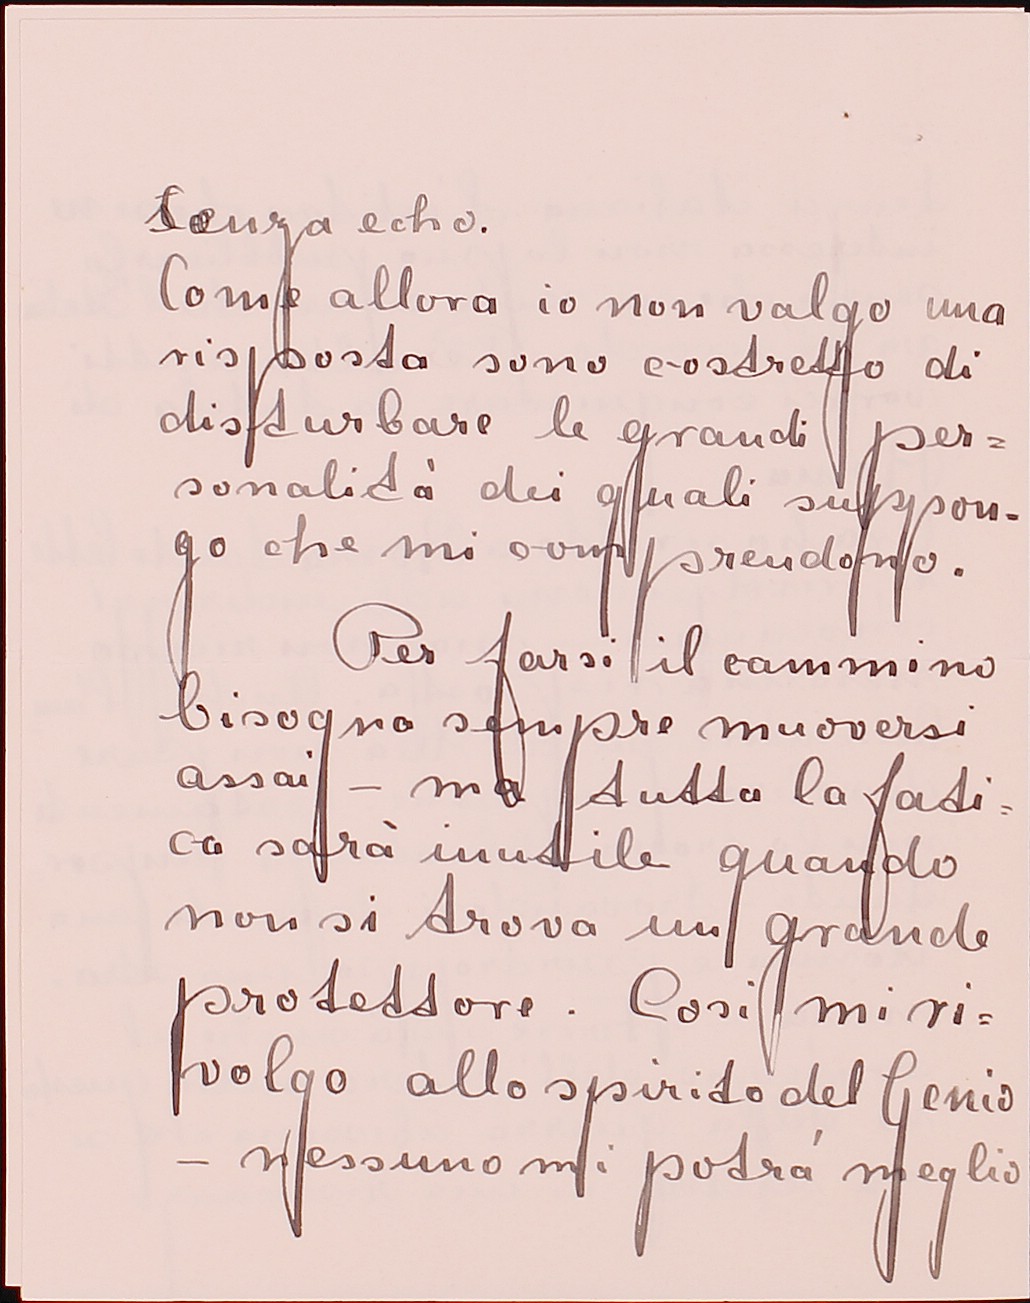 Senza echo.
Come allora io non valgo una
risposta sono costretto di
disturbare le grandi per=
sonalità dei quali suppon-
go che mi comprendono.
Per farsi il cammino
bisogna sempre muoversi
assai – ma tutta la fati=
ca sarà inutile quando
non si trova un grande
protettore. Cosi mi ri=
volgo allo spirito del Genio
– nessuno mi potrá meglio